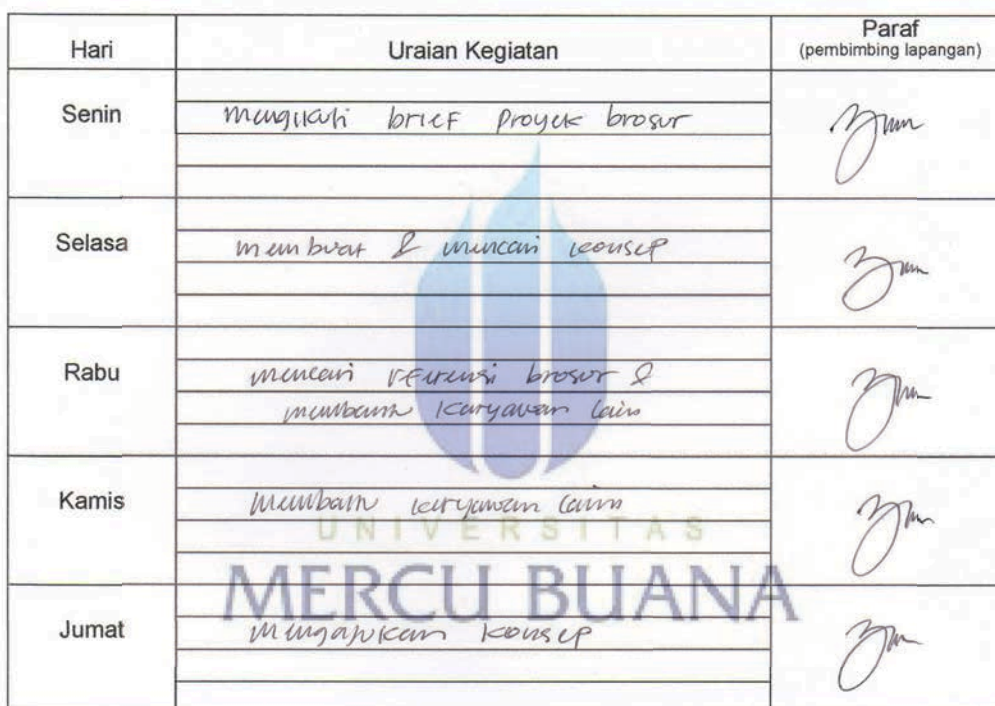 Hari Uraian Kegiatan Paraf
(pembimbing lapangan)
Senin mengikuti brief proyek brosur
Selasa membuat & mencari konsep
Rabu mencari referensi brosur &
membantu karyawan lain
Kamis membantu karyawan lain
UNIVERSITAS
MERCU BUANA
Jumat mengajukan konsep